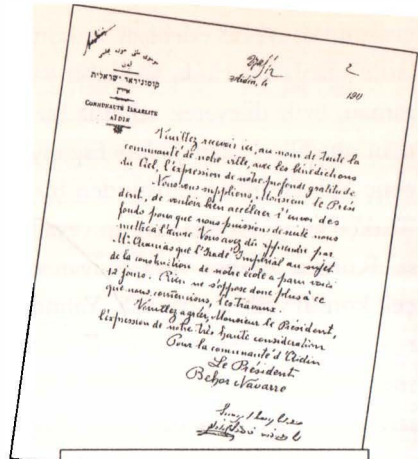 קומוניד'אד ישראלית
COMMUNAUTÉ ISRAÉLITE
AÏDIN
Aïdin, le 190
2
Veuillez recevoir ici, au nom de toute la
communauté de notre ville, avec les bénédictions
du Ciel, l'expression de notre profonde gratitude.
Nous vous supplions, Monsieur le Prési
dent, de vouloir bien accélérer l'envoi des
fonds pour que nous puissions de suite nous
mettre à l'œuvre. Vous avez dû apprendre par
Mr. Aranias que l'Iradé Impérial au sujet
de la construction de notre école a paru voici
12 jours. Rien ne s'oppose donc plus à ce
que nous continuions, les travaux.
Veuillez agréer, Monsieur le Président,
l'expression de notre très haute considération
Pour la communauté d'Aïdin
Le Président
Behor Navarro